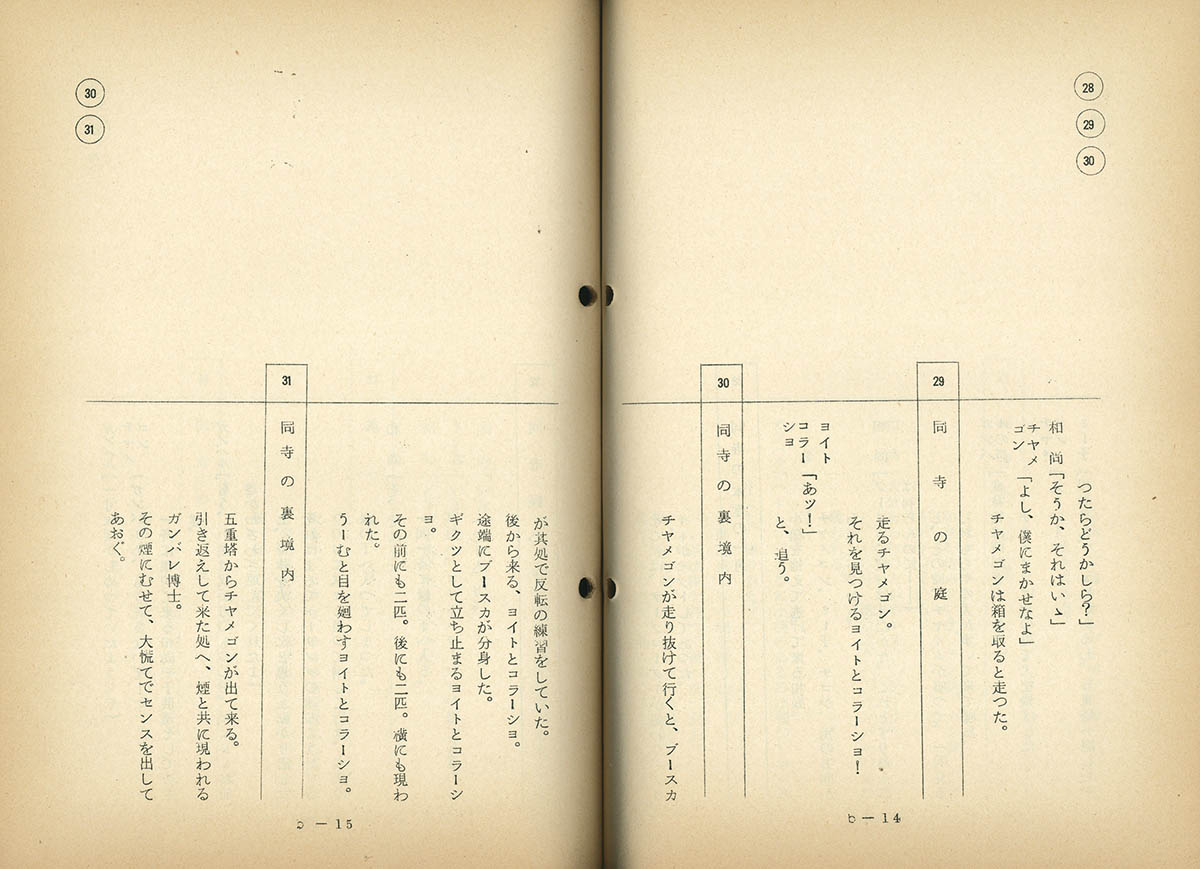 28
29
30
つたらどうかしら?」
和尚「そうか、それはいゝ」
チヤメゴン「よし、僕にまかせなよ」
チヤメゴンは箱を取ると走つた。
29
同寺の庭
走るチヤメゴン。
それを見つけるヨイトとコラーショ!
ヨイト
コラーショ「あッ!」
と、追う。
30
同寺の裏境内
チヤメゴンが走り抜けて行くと、ブースカ
b-14
30
31
が其処で反転の練習をしていた。
後から来る、ヨイトとコラーショ。
途端にブースカが分身した。
ギクツとして立ち止まるヨイトとコラーシ
ョ。
その前にも二匹。後にも二匹。横にも現わ
れた。
うーむと目を廻わすヨイトとコラーショ。
31
同寺の裏境内
五重塔からチヤメゴンが出て来る。
引き返えして来た処へ、煙と共に現われる
ガンバレ博士。
その煙にむせて、大慌てでセンスを出して
あおぐ。
b-15